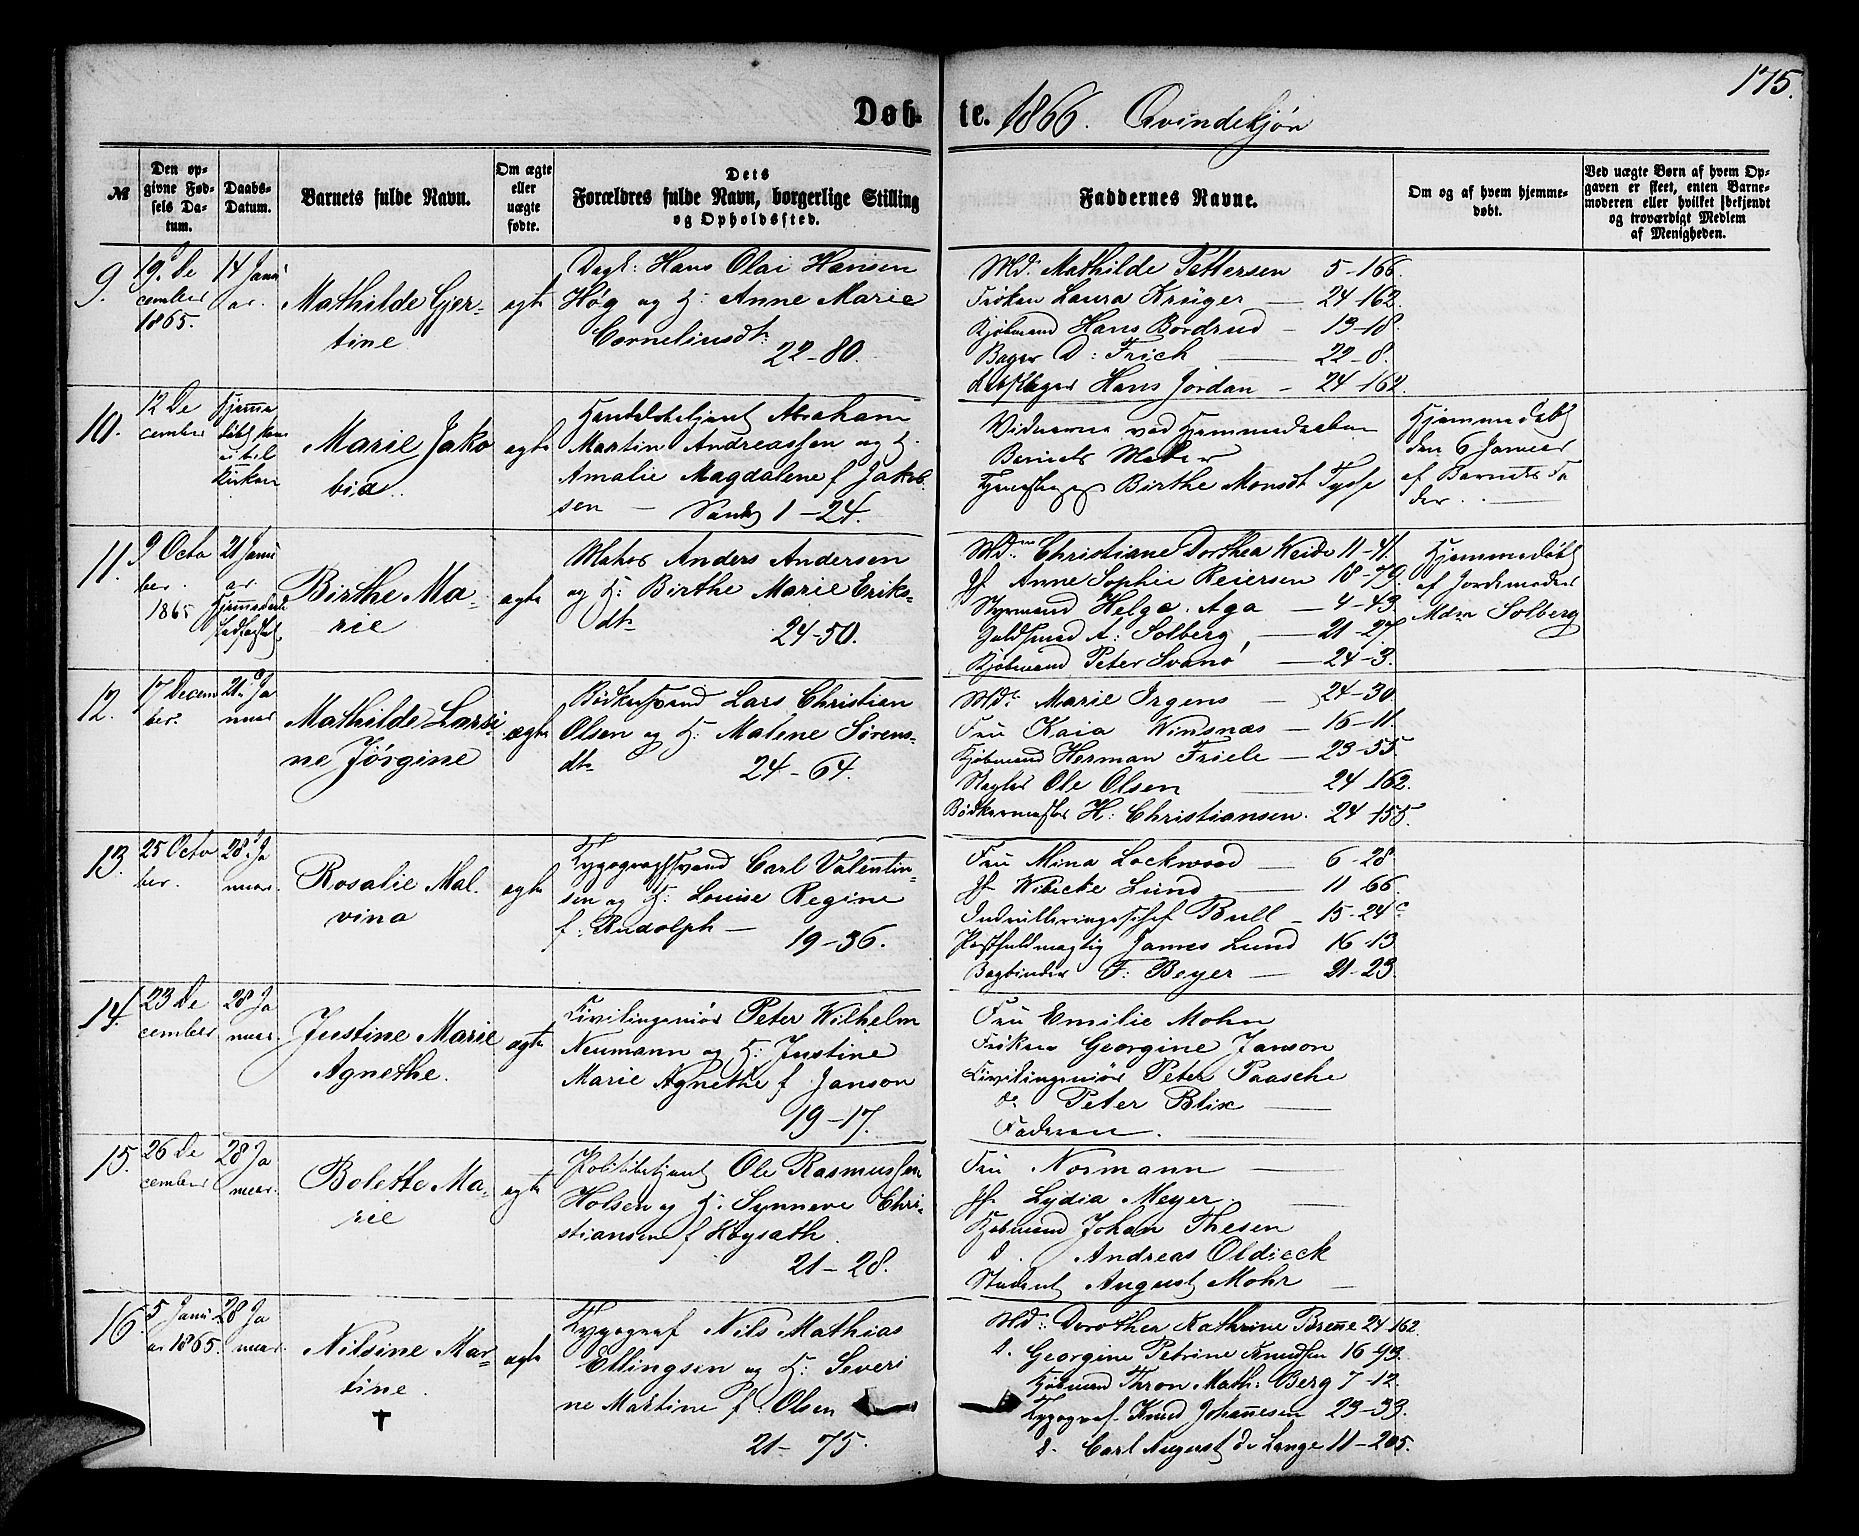 175.
Døb- te. 1866. Qvindekjøn
№
Den op-
givne Fød-
sels Da-
tum.
Daabs-
Datum.
Barnets fulde Navn.
Om ægte
eller
uægte
fødte.
Dets
Forældres fulde Navn, borgerlige Stilling
og Opholdssted.
Faddernes Navne.
Om og af hvem hjemme-
døbt.
Ved uægte Børn af hvem Op-
gaven er skeet, enten Barne-
moderen eller hvilket bekjendt
og troværdigt Medlem
af Menigheden.
9.
19. De
cember
1865.
14 Janu
ar.
Mathilde Gjer-
tine
egte
Dagl: Hans Olai Hansen
Høg og H: Anne Marie
Corneliusdtr
22-80.
Md: Mathilde Pettersen 5-166.
Frøken Laura Krüger — 24-162.
Kjøbmand Hans Bordrud - 13-18.
Bager D: Frich — 22-8.
Hans Jordan - 24-162
10.
12 De
cember
Hjemme
døbt kom
ei til
Kirken
Marie Jako
bia.
egte
Handelsbetjent Abraham
Martin Andreassen og H.
Amalie Magdalene f Jakob
sen — 1-24.
Vidnerne ved Hjemmedaaben
Barnets Moder
Birthe Monsdt Tysse
Hjemmedøbt
den 6 Januar
af Barnets Fa
der.
11.
9 Octo
ber.
1865
21 Janu
ar.
Birthe Ma-
rie
egte
Anders Andersen
og H: Birthe Marie Eriks-
dtr 24-50.
Md: Christiane Dorthea Weide 11-41.
Jf Anne Sophie Reiersen 18-79.
Styrmand Helge Aga — 4-43.
Guldsmed A: Solberg, — 21-27
Kjøbmand Peter Svanø — 24-3.
Hjemmedøbt
af Jordemoder
Mdm Solberg
12.
17 Decem
ber.
21. Ja
nuar
Mathilde Larsi
ne Jörgine
ægte
Bødkersvend Lars Christian
Olsen og H: Malene Sørens-
dtr 24-64.
Md: Marie Irgens — 24-30
Fru Kaia Winsnæs — 16-11.
Kjøbmand Herman Friele — 23-55.
Slagter Ole Olsen — 24-162.
Bødkermester H: Christiansen. 24-155.
13.
25 Octo
ber.
28. Ja
nuar.
Rosalie Mal.
vina
egte
Typografsvend Carl Valentin-
sen og H: Louise Regine
f. Rudolph — 19-36.
Fru Mina Lockwood — 6-28
Jf Wibicke Lund — 11-66.
Indrulleringschef Bull - 15-24c
Postfuldmægtig James Lund 16-13
Bogbinder F: Beyer — 21-23.
14.
23 De
cember
28 Ja
nuar.
Justine Marie
Agnethe.
egte
Civilingeniør Peter Wilhelm
Neumann og H: Justine
Marie Agnethe f Janson
19-17.
Fru Emilie Mohn
Frøken Georgine Janson
Civilingeniør Peter Paasche
do Peter Blix —
Faderen.
15.
26 De
cember
28 Ja
nuar.
Bolette Ma-
rie
egte
Politibetjent Ole Rasmussen
Holsen og H: Synneve Chri-
stiansen f Høysæth.
21-28.
Fru Normann —
Jf Lydia Meyer
Kjøbmand Johan Thesen
d. Andreas Oldieck
Student August Mohr —
16.
5 Janu
ar 1865.
28 Ja
nuar.
Nilsine Mar-
tine.
†
egte
Typograf Nils Mathias
Ellingsen og H: Severi
ne Martine f: Olsen
21-75.
Md: Dorothea Kathrine Brenne 24-162.
d. Georgine Petrine Knudsen 16-93.
Kjøbmand Thron Math: Berg 7-12.
Typograf. Knud Johannesen 23-33.
d. Carl August de Lange 11-205.